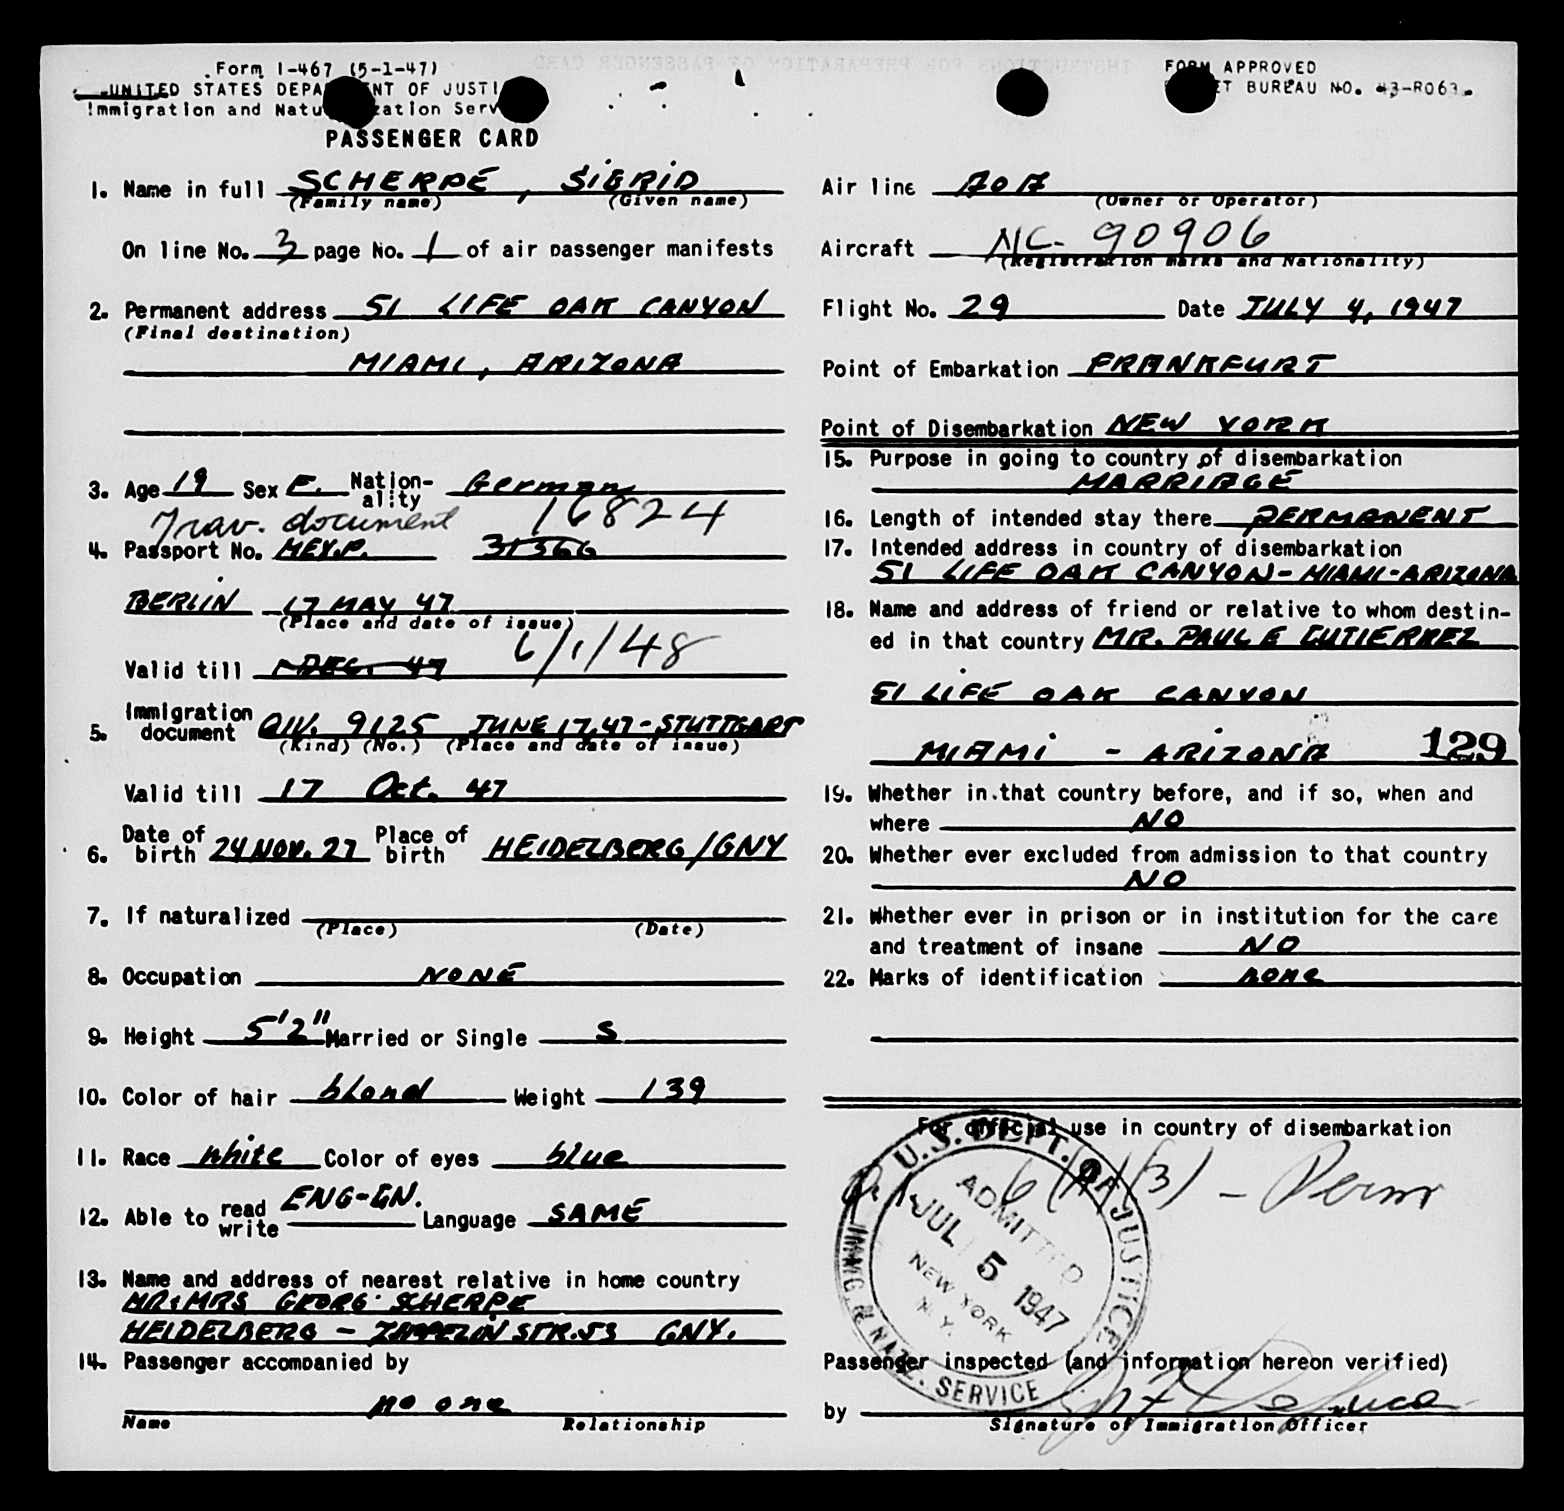 Form I-467 (5-1-47)
UNITED STATES DEPA NT OF JUSTI
Immigration and Natu zation Serv
PASSENGER CARD
FORM APPROVED
ET BUREAU NO. 43-R063.
1. Name in full SCHERPE, SIGRID
(Family name) (Given name)
On line No. 3 page No. 1 of air passenger manifests
2. Permanent address 51 LIFE OAK CANYON
(Final destination)
MIAMI, ARIZONA
3. Age 19 Sex F. Nation-ality German
Trav. document 16824
4. Passport No. MEY.P. 31366
BERLIN 17 MAY 47
(Place and date of issue)
6/1/48
Valid till DEC. 47
5. Immigration document QIV. 9125 JUNE 17, 47 - STUTTGART
(Kind) (No.) (Place and date of issue)
Valid till 17 Oct. 47
6. Date of birth 24 NOV. 27 Place of birth HEIDELBERG/GNY
7. If naturalized
(Place) (Date)
8. Occupation NONE
9. Height 5'2" Married or Single S
10. Color of hair blond Weight 139
11. Race white Color of eyes blue
12. Able to read write ENG-GN. Language SAME
13. Name and address of nearest relative in home country
MR & MRS GEORG SCHERPE
HEIDELBERG - ZAPPELIN STR. 53 GNY.
14. Passenger accompanied by
no one
Name Relationship
Air line AOA
(Owner or Operator)
Aircraft NC- 90906
(Registration marks and Nationality)
Flight No. 29 Date JULY 4, 1947
Point of Embarkation FRANKFURT
Point of Disembarkation NEW YORK
15. Purpose in going to country of disembarkation
MARRIAGE
16. Length of intended stay there PERMANENT
17. Intended address in country of disembarkation
51 LIFE OAK CANYON - MIAMI - ARIZONA
18. Name and address of friend or relative to whom destin-
ed in that country MR. PAUL E GUTIERREZ
51 LIFE OAK CANYON
MIAMI - ARIZONA 129
19. Whether in that country before, and if so, when and
where NO
20. Whether ever excluded from admission to that country
NO
21. Whether ever in prison or in institution for the care
and treatment of insane NO
22. Marks of identification none
For official use in country of disembarkation
6(A)(3) - Perm
U.S. DEPT. OF JUSTICE
ADMITTED
JUL 5 1947
NEW YORK
N.Y.
IMMIG. & NATZ. SERVICE
Passenger inspected (and information hereon verified)
by
Signature of Immigration Officer